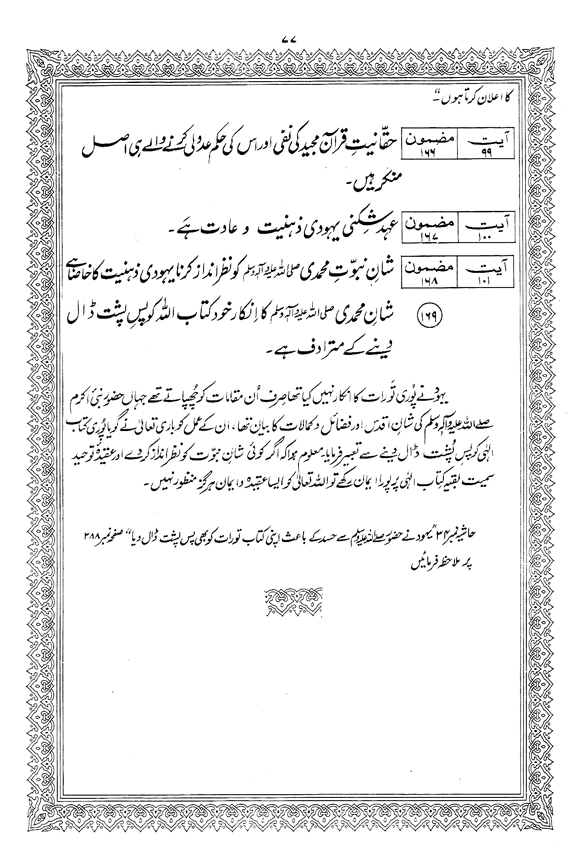 ۷۷
کا اعلان کرتا ہوں“۔
آیت ۹۹ مضمون ۱۶۶ حقّانیتِ قرآن مجید کی نفی اور اس کی حکم عدولی کرنے والے ہی اصل
منکر ہیں۔
آیت ۱۰۰ مضمون ۱۶۷ عہد شکنی یہودی ذہنیت و عادت ہے۔
آیت ۱۰۱ مضمون ۱۶۸ شانِ نبوّتِ محمدی صلی اللہ علیہ وآلہ وسلم کو نظر انداز کرنا یہودی ذہنیت کا خاصا ہے
۱۶۹ شانِ محمدی صلی اللہ علیہ وآلہ وسلم کا اِنکار خود کتاب اللہ کو پسِ پشت ڈال
دینے کے مترادف ہے۔
یہود نے پُوری تَورات کا انکار نہیں کیا تھا صرف اُن مقامات کو چُھپاتے تھے جہاں حضور نبیٔ اکرم
صلی اللہ علیہ وآلہ وسلم کی شانِ اقدس اور فضائل و کمالات کا بیان تھا، ان کے عمل کو باری تعالیٰ نے گویا پُوری کتاب
الٰہی کو پس پُشت ڈال دینے سے تعبیر فرمایا۔ معلوم ہوا کہ اگر کوئی شانِ نبوّت کو نظر انداز کر دے اور عقیدۂ توحید
سمیت بقیہ کتاب الٰہی پر پُورا ایمان رکھے تو اللہ تعالیٰ کو ایسا عقیدہ و ایمان ہرگز منظور نہیں۔
حاشیہ نمبر ۳۴ ”یہود نے حضور صلی اللہ علیہ وسلم سے حسد کے باعث اپنی کتاب تورات کو بھی پس پشت ڈال دیا“ صفحہ نمبر ۲۸۸
پر ملاحظہ فرمائیں